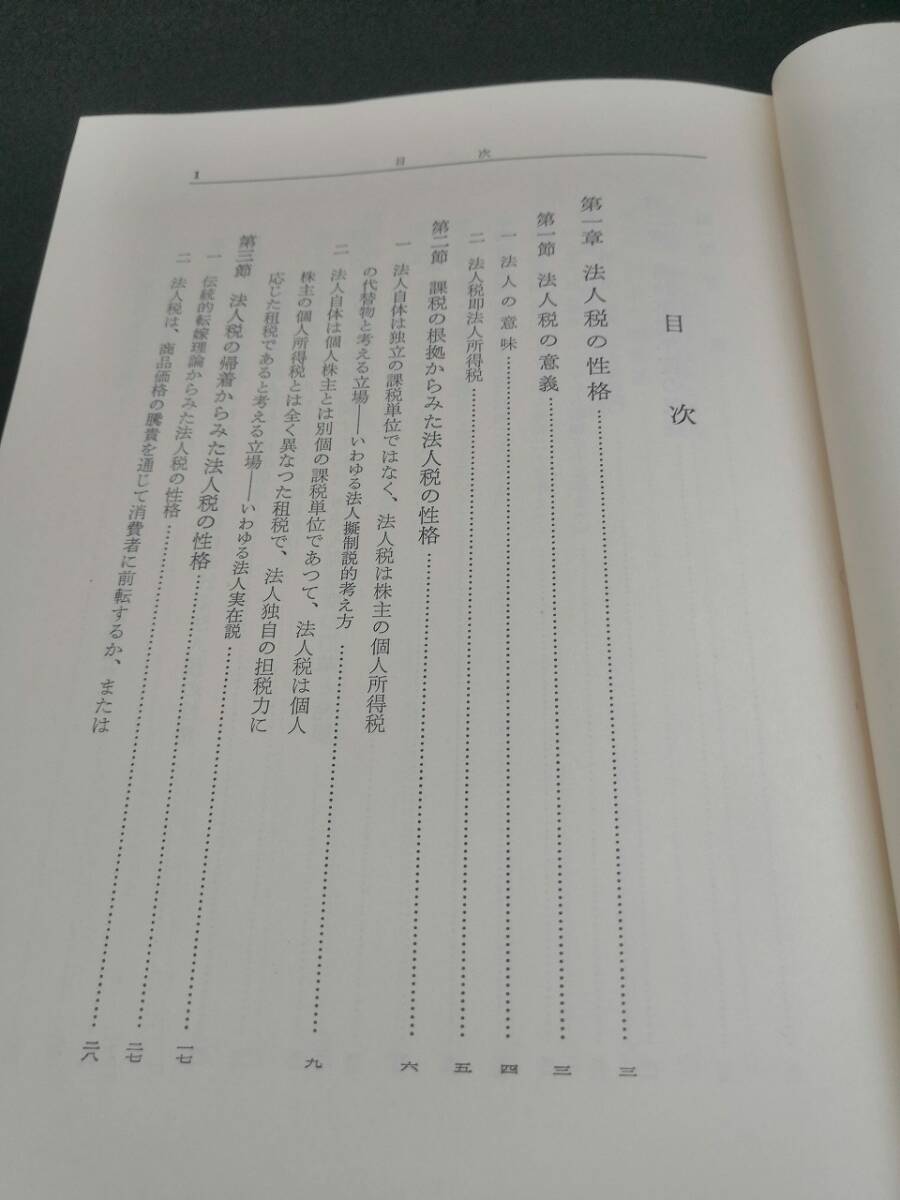 目 次
1
目 次
第一章 法人税の性格……………………三
第一節 法人税の意義……………………三
一 法人の意味……………………四
二 法人税即法人所得税……………………五
第二節 課税の根拠からみた法人税の性格……………………六
一 法人自体は独立の課税単位ではなく、法人税は株主の個人所得税
の代替物と考える立場――いわゆる法人擬制説的考え方……………………九
二 法人自体は個人株主とは別個の課税単位であつて、法人税は個人
株主の個人所得税とは全く異なつた租税で、法人独自の担税力に
応じた租税であると考える立場――いわゆる法人実在説……………………一七
第三節 法人税の帰着からみた法人税の性格……………………二七
一 伝統的転嫁理論からみた法人税の性格……………………二八
二 法人税は、商品価格の騰貴を通じて消費者に前転するか、または